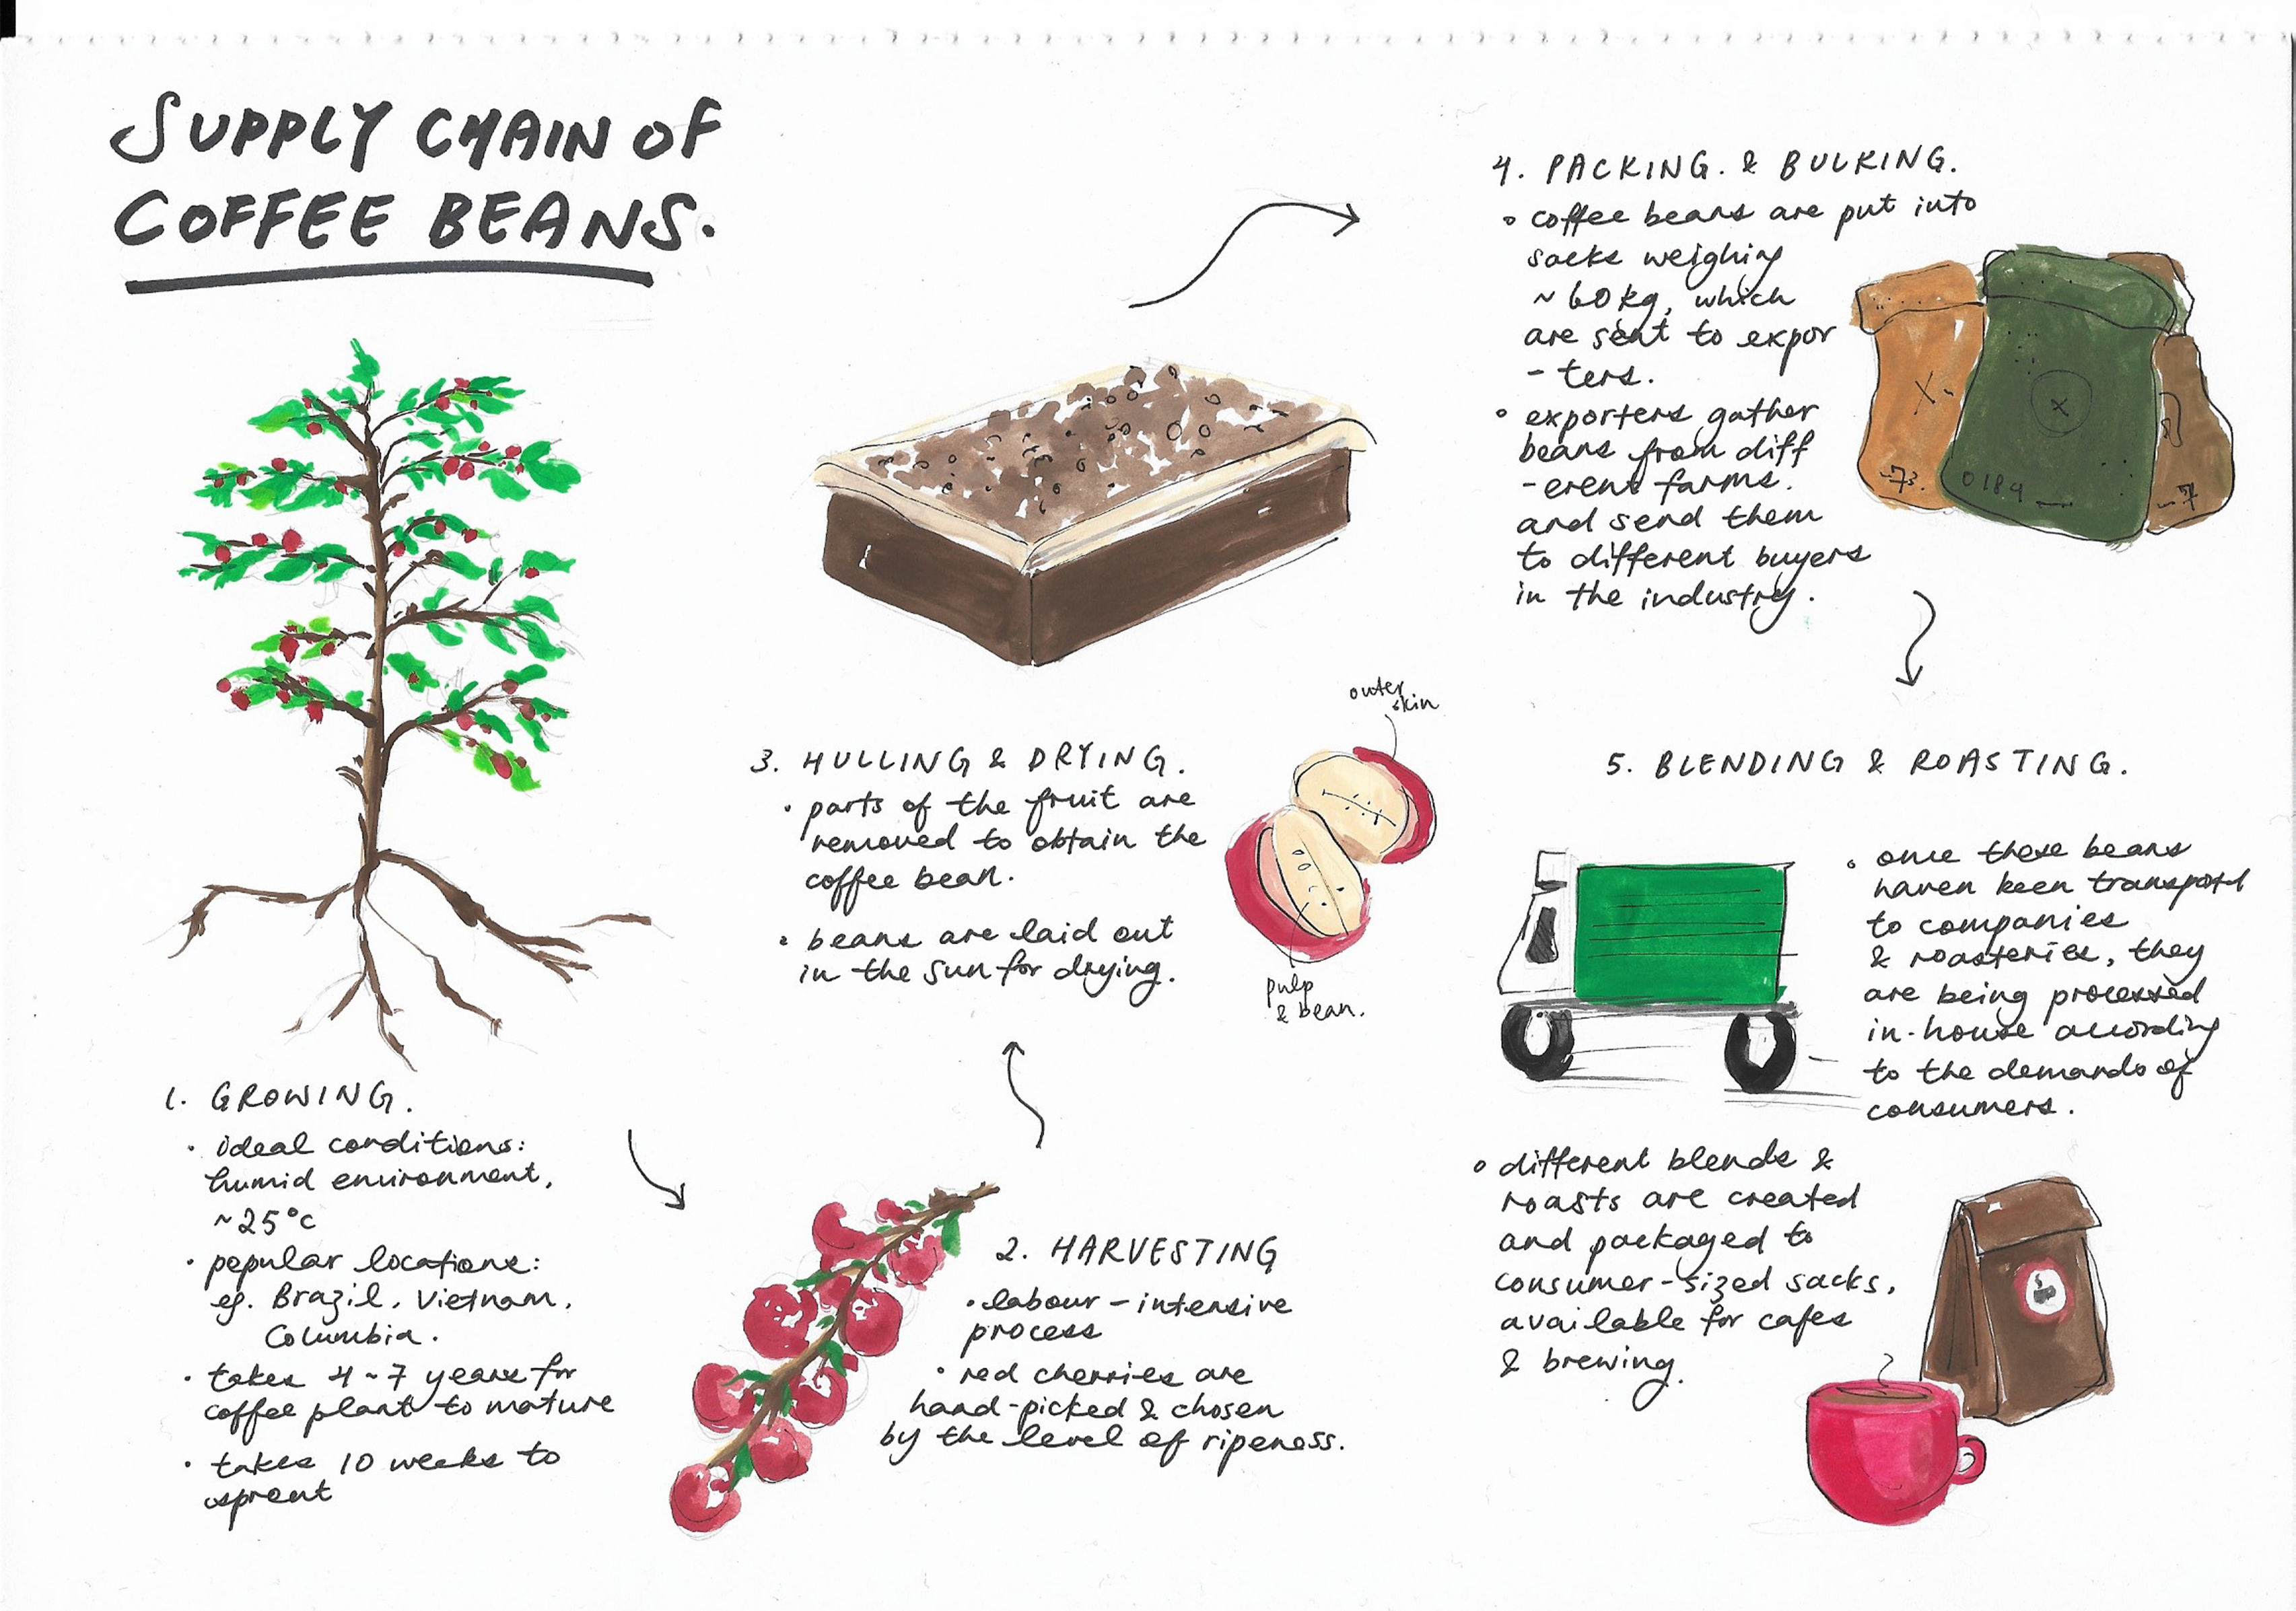 SUPPLY CHAIN OF
COFFEE BEANS.
1. GROWING.
· ideal conditions:
humid environment,
~25°c
· popular locations:
eg. Brazil, Vietnam,
Columbia.
· takes 4~7 years for
coffee plant to mature
· takes 10 weeks to
sprout
2. HARVESTING
· labour-intensive
process
· red cherries are
hand-picked & chosen
by the level of ripeness.
3. HULLING & DRYING.
· parts of the fruit are
removed to obtain the
coffee bean.
· beans are laid out
in the sun for drying.
outer
skin
pulp
& bean.
4. PACKING. & BULKING.
° coffee beans are put into
sacks weighing
~ 60kg, which
are sent to expor
-ters.
° exporters gather
beans from diff
-erent farms.
and send them
to different buyers
in the industry.
X
73.
X
0189
7
5. BLENDING & ROASTING.
° once these beans
haven been transport
to companies
& roasteries, they
are being processed
in-house according
to the demands of
consumers.
° different blends &
roasts are created
and packaged to
consumer-sized sacks,
available for cafes
& brewing.